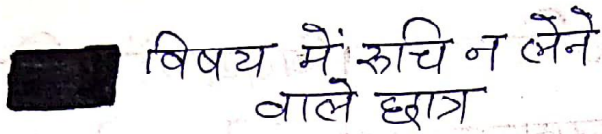 विषय में रुचि न लेने
वाले छात्र